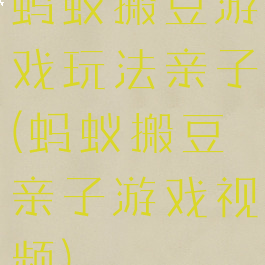 蚂蚁搬豆游
戏玩法亲子
(蚂蚁搬豆
亲子游戏视
频)